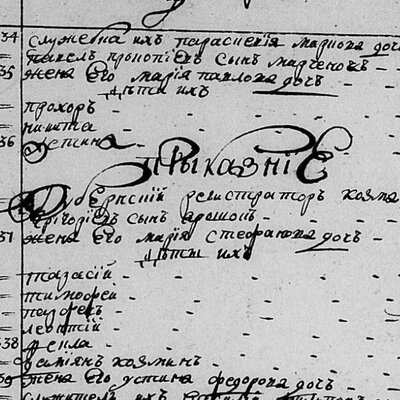 34 служебна ихъ параскевія маркова доч
павелъ прокопіевъ сынъ марченокъ
35 жена его марія павлова дочъ
дѣти ихъ
прохоръ
никита
36 устина
Прыказніе
Губернскій регистраторъ козма
григоріевъ сынъ
37 жена его марія стефанова дочъ
дѣти ихъ
тарасій
тимофей
леонтій
38
козминъ
39 жена его устина федорова дочъ
служителъ ихъ